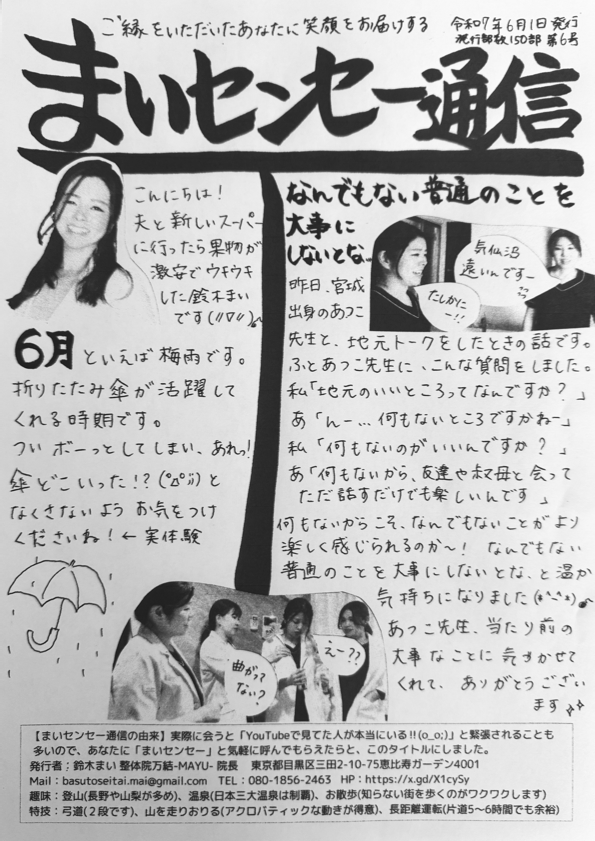 ご縁をいただいたあなたに笑顔をお届けする
令和7年6月1日 発行
発行部数150部 第6号
まいセンセー通信
こんにちは!
夫と新しいスーパー
に行ったら果物が
激安でウキウキ
した鈴木まい
です(〃▽〃)
6月といえば梅雨です。
折りたたみ傘が活躍して
くれる時期です。
ついボーっとしてしまい、あれっ!
傘どこいった!?(°Δ°ⅱ)と
なくさないようお気をつけ
くださいね!←実体験
なんでもない普通のことを
大事に
しないとな…
気仙沼
遠いんですー
たしかに
ー!!
昨日、宮城
出身のあつこ
先生と、地元トークをしたときの話です。
ふとあつこ先生に、こんな質問をしました。
私「地元のいいところってなんですか?」
あ「んー…何もないところですかねー」
私「何もないのがいいんですか?」
あ「何もないから、友達や叔母と会って
ただ話すだけでも楽しいんです」
何もないからこそ、なんでもないことがより
楽しく感じられるのか〜! なんでもない
普通のことを大事にしないとな、と温か
気持ちになりました(*^-^*)
あつこ先生、当たり前の
大事なことに気づかせて
くれて、ありがとうござい
ます
曲がって
ない?
えー??
【まいセンセー通信の由来】実際に会うと「YouTubeで見てた人が本当にいる!!(o_o;)」と緊張されることも
多いので、あなたに「まいセンセー」と気軽に呼んでもらえたらと、このタイトルにしました。
発行者;鈴木まい 整体院万結-MAYU- 院長 東京都目黒区三田2-10-75恵比寿ガーデン4001
Mail:basutoseitai.mai@gmail.com TEL:080-1856-2463 HP:https://x.gd/X1cySy
趣味:登山(長野や山梨が多め)、温泉(日本三大温泉は制覇)、お散歩(知らない街を歩くのがワクワクします)
特技:弓道(2段です)、山を走りおりる(アクロバティックな動きが得意)、長距離運転(片道5〜6時間でも余裕)